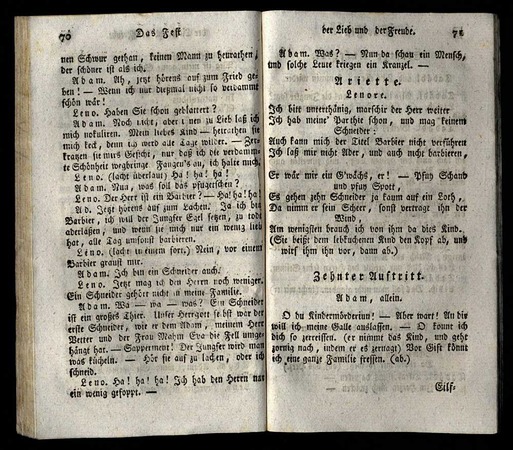 70 Das Fest
nen Schwur gethan, keinen Mann zu heurathen,
der schöner ist als ich.
Adam. Ah, jetzt hörens auf zum Fried ge-
ben! — Wenn ich nur diezmal nicht so verdammt
schön wär!
Leno. Haben Sie schon geblattert?
Adam. Noch nicht, aber ihnen zu Lieb laß ich
mich nokuliren. Mein liebes Kind — heirathen sie
mich keck, denn ich werd alle Tage wilder. — Zer-
kratzen sie mirs Gesicht, nur daß ich die verdamm-
te Schönheit wegbringe. Fangen's an, ich halte mich.
Leno. (lacht überlaut) Ha! ha! ha!
Adam. Nun, was soll das pfugetschen?
Leno. Der Herr ist ein Barbier? — Ha! ha! ha!
Ad. Jetzt hörens auf zum Lachen! Ja ich bin
Barbier, ich will der Jungfer Egel setzen, zu todt
aderlaßen, und wenn sie mich nur ein wenig lieb
hat, alle Tag umsonst barbieren.
Leno. (lacht in einem fort.) Nein, vor einem
Barbier graust mir.
Adam. Ich bin ein Schneider auch.
Leno. Jetzt mag ich den Herrn noch weniger.
Ein Schneider gehört nicht in meine Familie.
Adam. Wa — wa — was? Ein Schneider
ist ein großes Thier. Unser Herrgott selbst war der
erste Schneider, wie er dem Adam, meinem Herr
Vetter und der Frau Mahm Eva die Fell umge-
hängt hat. — Sapperment! Der Jungfer wird man
was kücheln. — Hör sie auf zu lachen, oder ich
schneid.
Leno. Ha! ha! ha! Ich hab den Herrn nur
ein wenig gefoppt. —
der Lieb und der Freude. 71
Adam. Was? — Nun da schau ein Mensch,
und solche Leute kriegen ein Kranzel. —
Ariette.
Lenore.
Ich bitt unterthänig, marschir der Herr weiter
Ich hab meine Parthie schon, und mag keinem
Schneider:
Auch kann mich der Titel Barbier nicht verführen
Ich laß mir nicht Ader, und auch nicht barbieren,
Er wär mir ein G'wächs, er! — Pfuy Schand
und pfuy Spott,
Es gehen zehn Schneider ja kaum auf ein Loth,
Da nimm er sein Scheer, sonst vertragt ihn der
Wind,
Am wenigsten brauch ich von ihm da dies Kind.
(Sie beißt dem lebkuchenen Kind den Kopf ab, und
wirft ihm ihn vor, dann ab.)
Zehnter Auftritt.
Adam, allein.
O du Kindermörderinn! — Aber wart! An dir
will ich meine Galle auslassen. — O könnt ich
dich so zerreissen. (er nimmt das Kind, und geht
zornig nach, indem er es zernagt) Vor Gift könnt
ich eine ganze Familie fressen. (ab.)
Eilf-